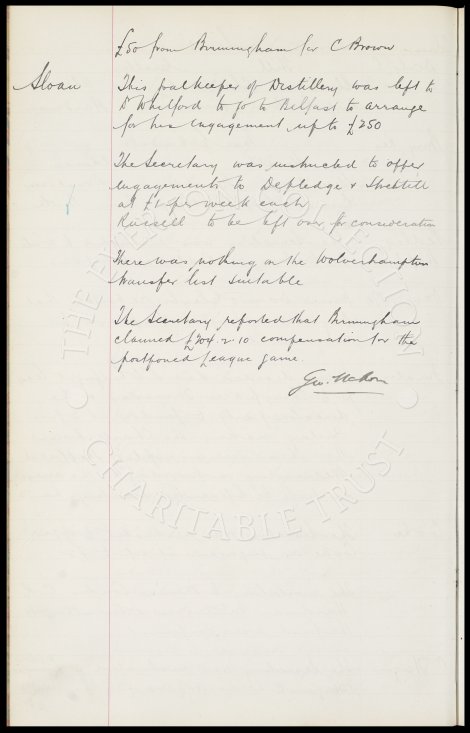 £50 from Birmingham for C Brown
Sloan
This goalkeeper of Distillery was left to
Dr Whitford to go to Belfast to arrange
for his engagement up to £250
The Secretary was instructed to offer
engagements to Depledge & Strettell
at £1 per week each
Russell to be left over for consideration
There was nothing on the Wolverhampton
transfer list suitable
The Secretary reported that Birmingham
claimed £204.2.10 compensation for the
postponed League game.
Geo. Mahon
THE EVERTON COLLECTION
CHARITABLE TRUST